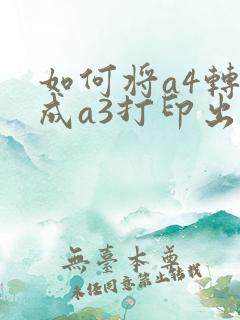 如何将a4轉
成a3打印出
無臺本尊
未经同意禁止转载